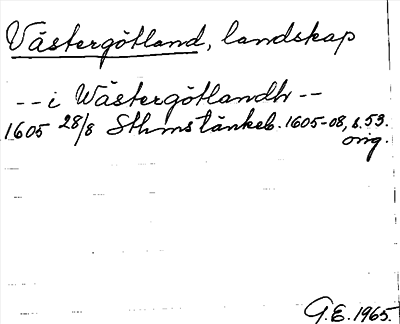 Västergötland, landskap
-- i Wästergötlandh --
1605 28/8 Sthms tänkeb. 1605-08, s. 53.
orig.
G.E. 1965.